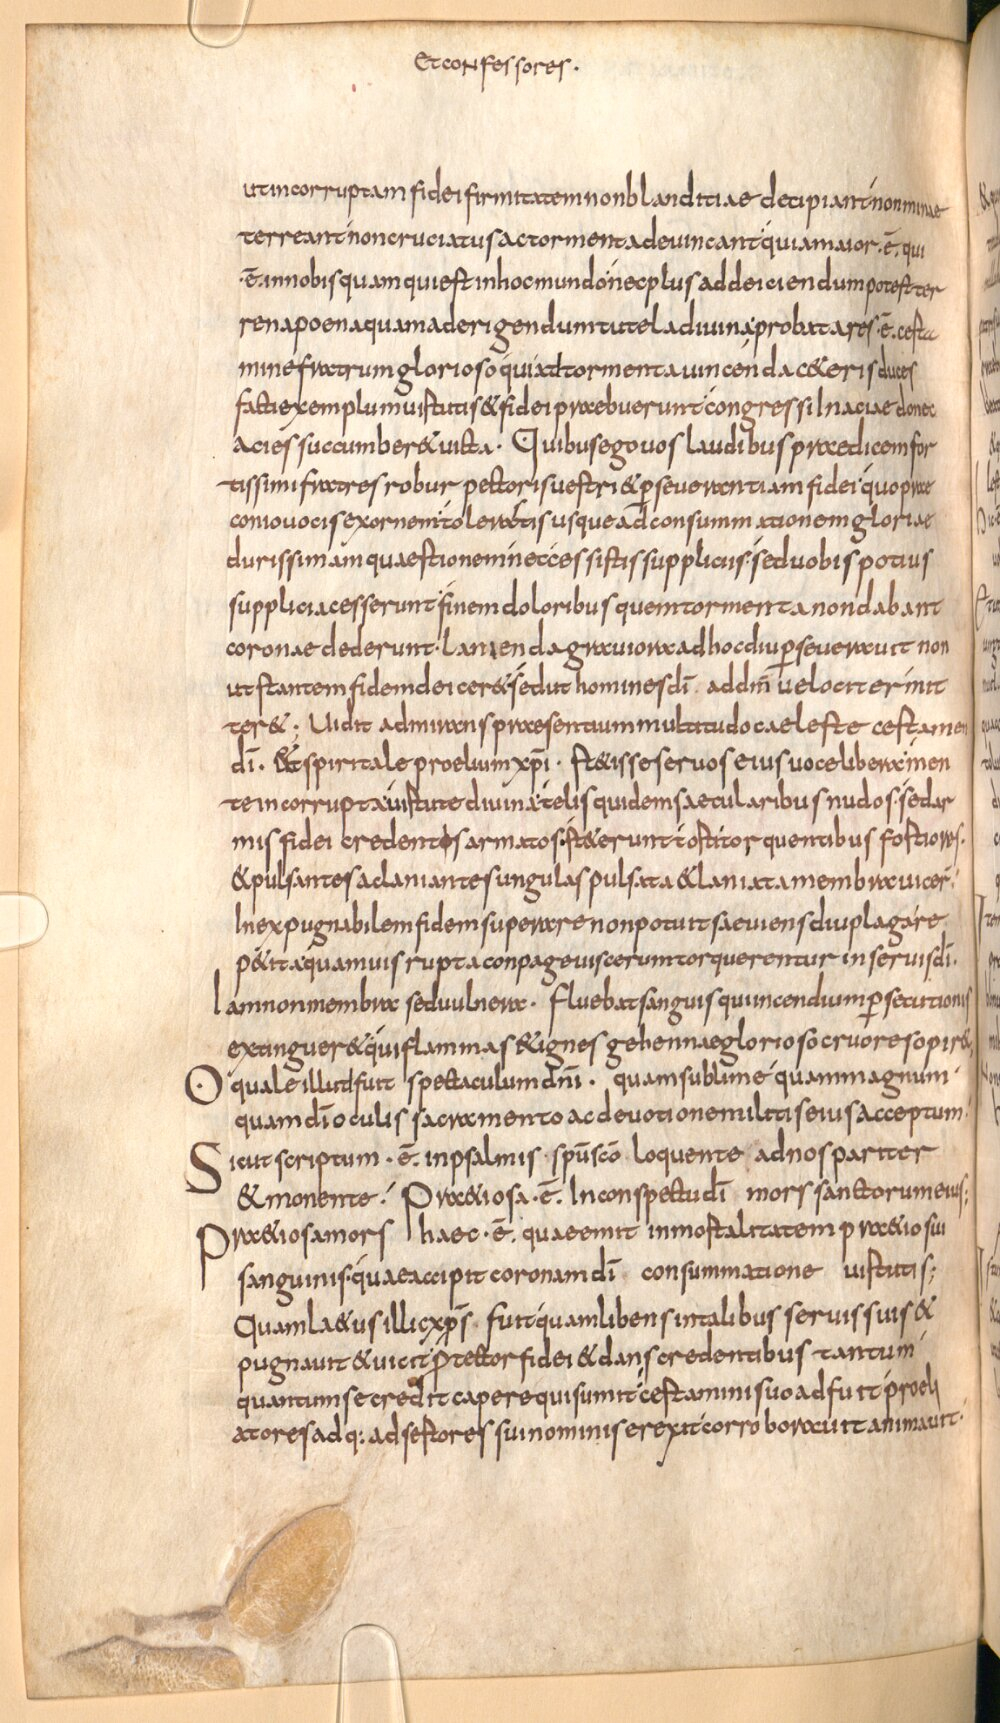 Et confessores.
ut incorruptam fidei firmitatem non blanditiae decipiant non minae
terreant non cruciatus ac tormenta devincant quia maior · ē · qui
· ē · in nobis quam qui est in hoc mundo nec plus ad deiciendum potest ter
rena poena quam ad erigendum tutela divina probata res · ē · certa
mine fratrum glorioso qui ad tormenta vincenda ceteris duces
facti exemplum virtutis & fidei praebuerunt congressi In acie donec
acies succumber& victa · Quibus ego vos laudibus praedicem for
tissimi fratres robur pectoris vestri & perseverantiam fidei quo prae
conio vocis exornem tolerastis usque ad consummationem gloriae
durissimam quaestionem nec cessistis suppliciis sed vobis potius
supplicia cesserunt finem doloribus quem tormenta non dabant
coronae dederunt · Lanienda graviora ad hoc diu perseveravit non
ut stantem fidem deicer& sed ut homines dī ad dnm̄ velociter mit
ter&; Vidit admirans praesentium multitudo caeleste certamen
dī · & spiritale proelium xp̄i · st&isse servos eius voce libera men
te incorrupta virtute divina telis quidem saecularibus nudos sed ar
mis fidei credentes armatos st&erunt tosti torquentibus fortiores ·
& pulsantes ac laniantes ungulas pulsata & laniata membra vicer
Inexpugnabilem fidem superare non potuit saeviens diu plaga re
p&ita quamvis rupta conpage viscerum torquerentur in servis dī ·
Iam non membra sed vulnera · Fluebat sanguis qui incendium persecutionis
extinguer& qui flammas & ignes gehennae glorioso cruore sopir&
O quale illud fuit spectaculum dn̄i · quam sublime quam magnum
quam dī oculis sacramento ac devotione militis eius acceptum
Sicut scriptum · ē · in psalmis sp̄u sc̄o loquente ad nos pariter
& monente · Pr&iosa · ē · In conspectu dī mors sanctorum eius;
Pr&iosa mors haec · ē · quae emit inmortalitatem pr&io sui
sanguinis quae accipit coronam dī consummatione virtutis;
Quam la&us illic xp̄s fuit quam libens in talibus servis suis &
pugnavit & vicit protector fidei & dans credentibus tantum
quantum se credit capere qui sumit certamini suo adfuit proeli
atores adq: adsertores sui nominis erexit corroboravit animavit ·